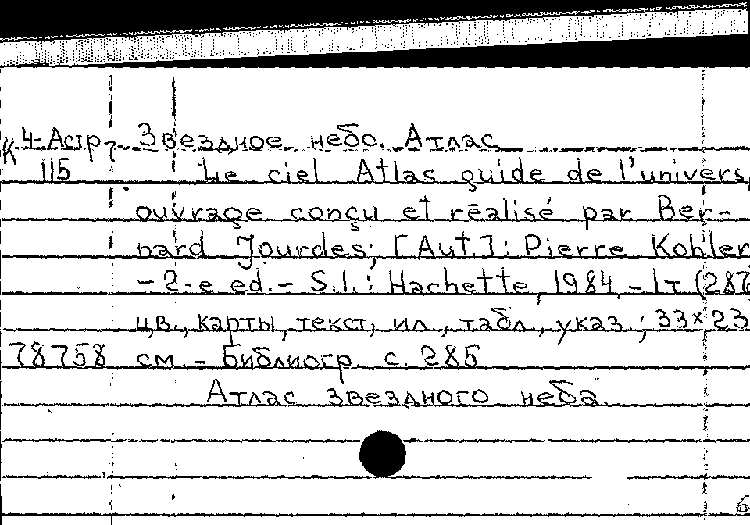 К 4-Астр Звездное небо. Атлас
115 Le ciel Atlas guide de l'univers,
ouvrage conçu et réalisé par Ber-
nard Jourdes; [Aut.]: Pierre Kohler
- 2-e ed. - S.l.: Hachette, 1984. - 1т (287
цв., карты, текст, ил., табл., указ.; 33×23
78758 см - Библиогр. с. 285
Атлас звездного неба.